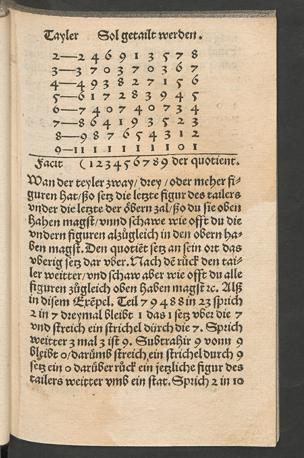 Tayler Sol getailt werden.
2—2 4 6 9 1 3 5 7 8
3—3 7 0 3 7 0 3 6 7
4—4 9 3 8 2 7 1 5 6
5—6 1 7 2 8 3 9 4 5
6—7 4 0 7 4 0 7 3 4
7—8 6 4 1 9 7 5 2 3
8—9 8 7 6 5 4 3 1 2
9—1 1 1 1 1 1 1 1 0 1
Facit (1 2 3 4 5 6 7 8 9 der quotient.
Wan der teyler zway/ drey/ oder meher fi-
guren hat/ ßo setz die letzte figur des tailers
vnder die letzte der öbern zal/ ßo du sie oben
hahen magst/ vnnd schawe wie offt du die
vndern figuren alzügleich in den obern ha-
ben magst. Den quotiēt setz an sein ort das
vberig setz dar vber. Nach dē růck den tai-
ler weitter/ vnd schaw aber wie offt du alle
figuren zůgleich oben haben magst ꝛc. Alß
in disem Exēpel. Teil 7 9 4 8 8 in 2 3 sprich
2 in 7 dreymal bleibt 1 das 1 setz vber die 7
vnd streich ein strichel dürch die 7. Sprich
weitter 3 mal 3 ist 9. Subtrahir 9 vonn 9
bleibt 0/ darůmb streich ein strichel durch 9
setz ein 0 darüber růck ein jetzliche figur des
tailers weitter vmb ein stat. Sprich 2 in 10